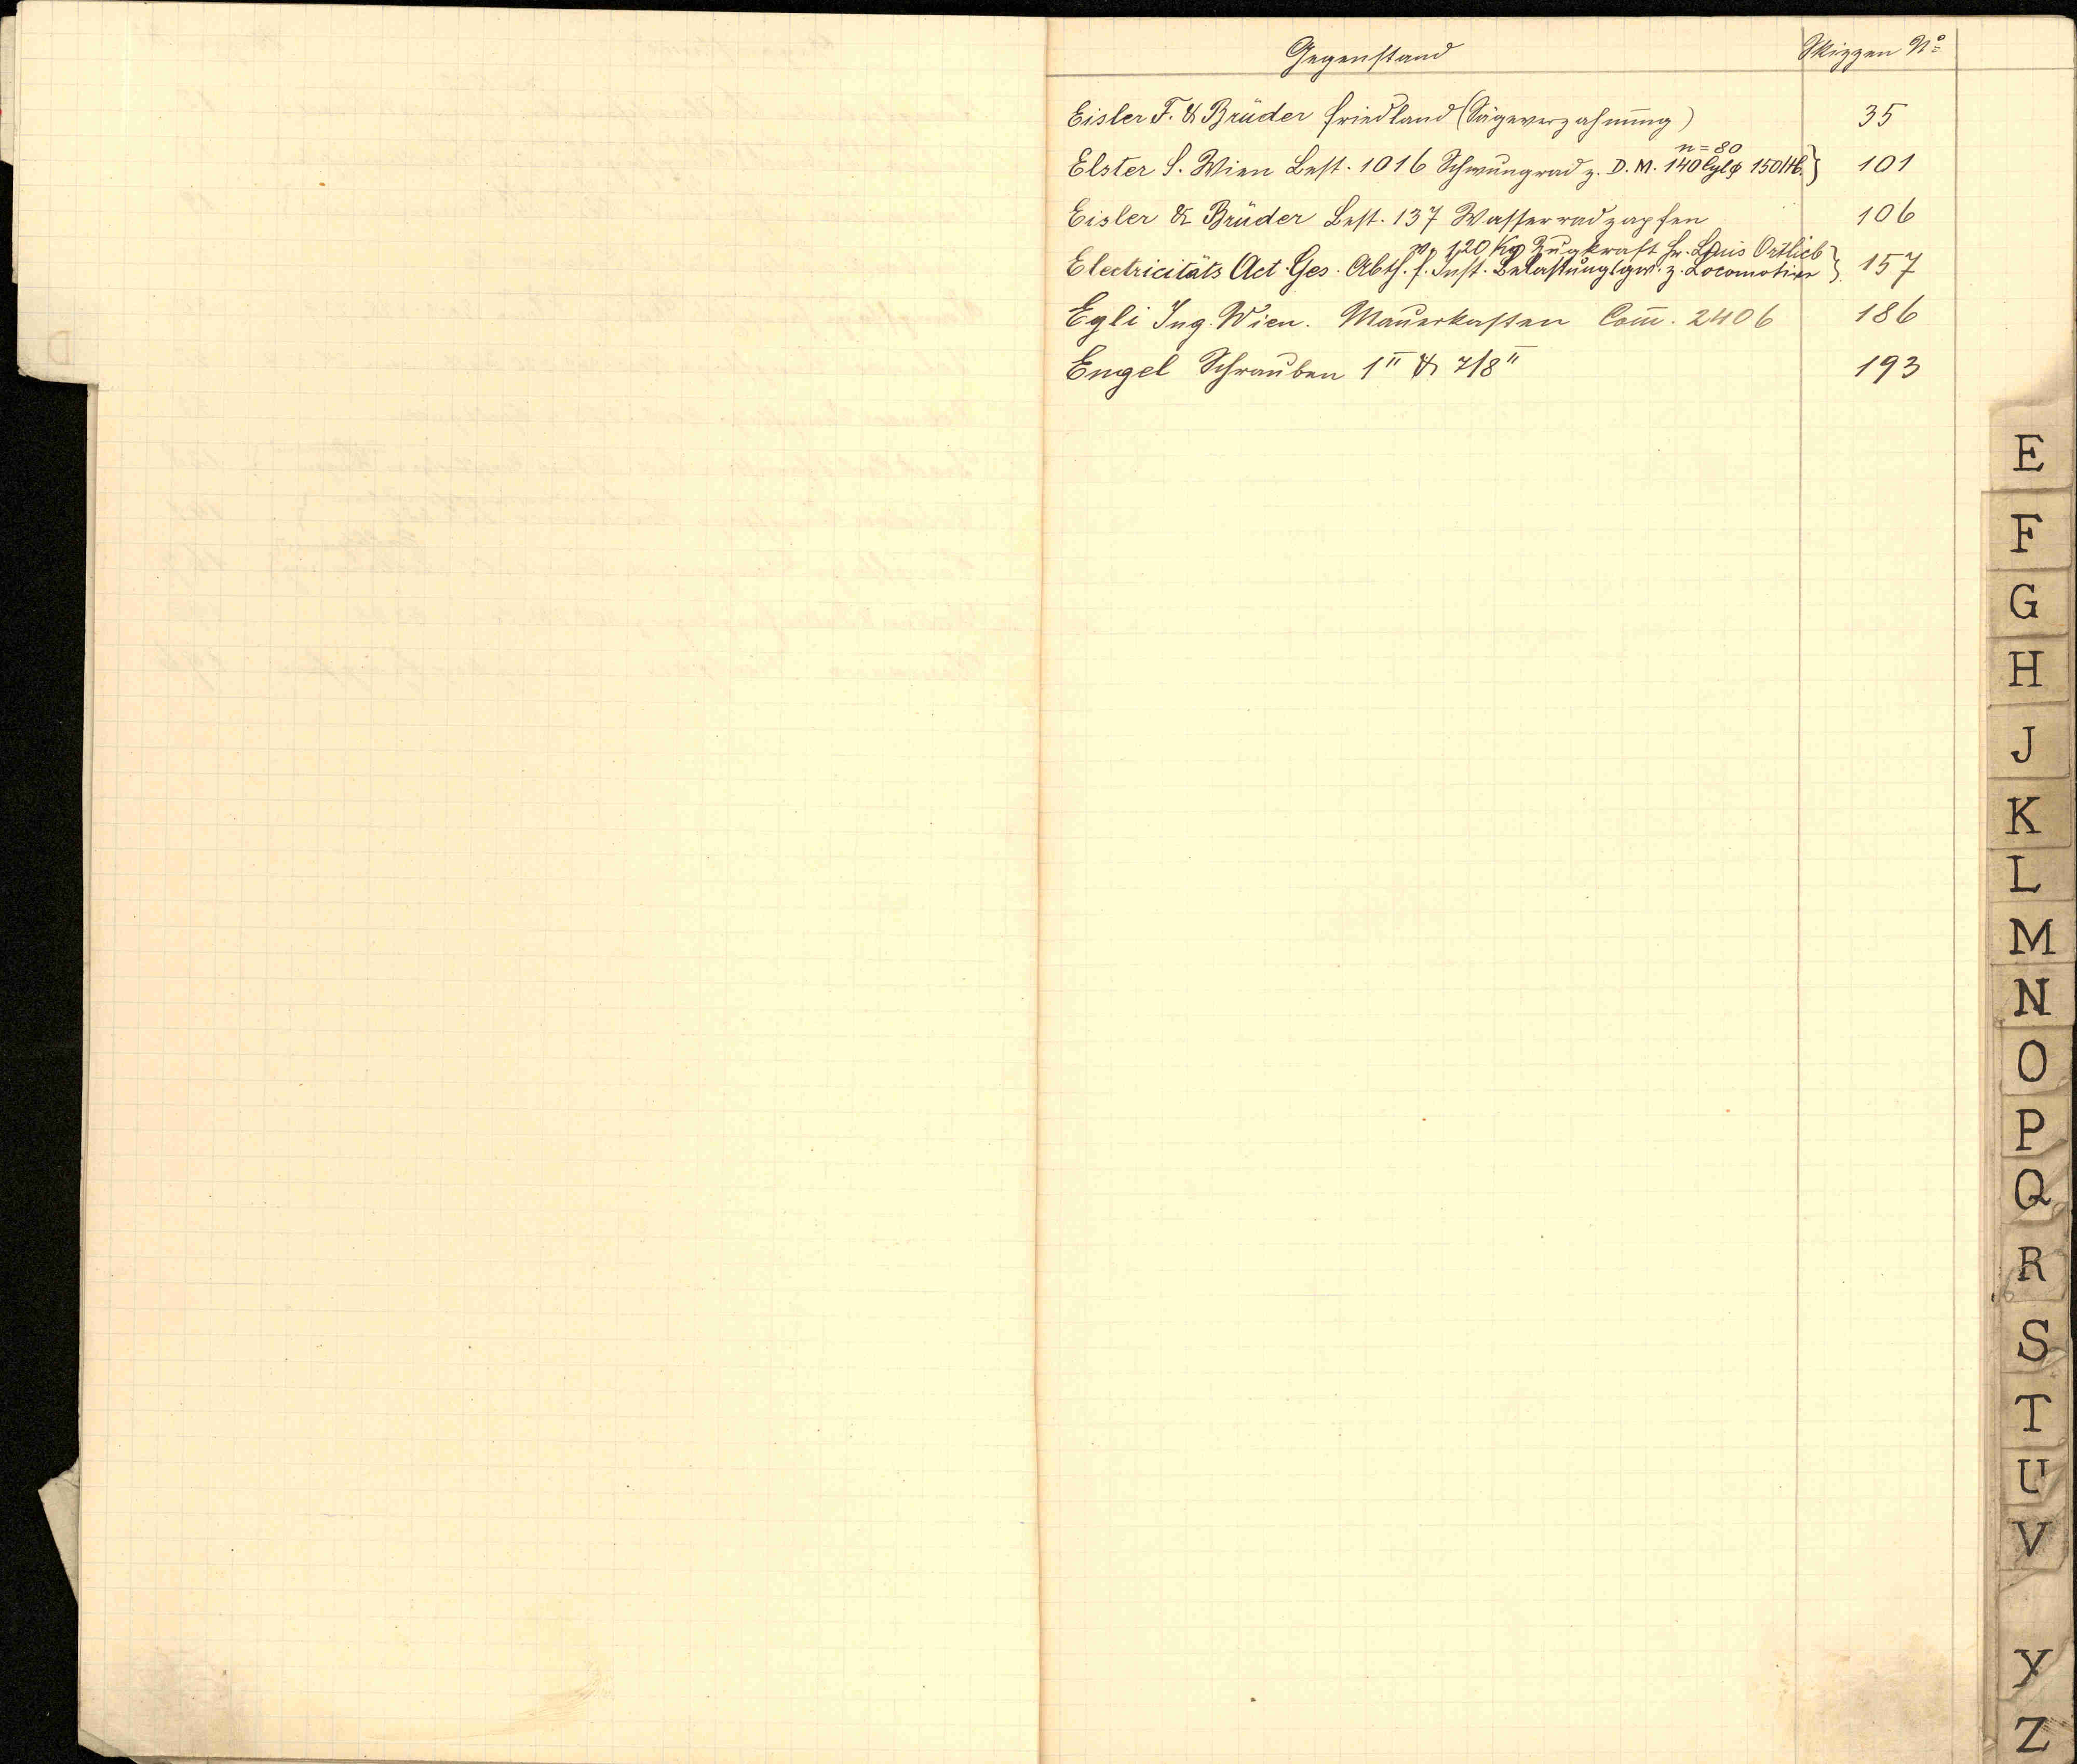 Gegenstand Skizzen No
Eisler F. & Brüder Friedland (Sägeverzahnung) 35
n = 80
Elster S. Wien Best. 1016 Schwungrad z. D. M. 140 Cylφ 150 Hb. } 101
Eisler & Brüder Best. 137 Wasserradzapfen 106
v. 120 Kg Zugkraft Hr. Louis Ortlieb
Electricitäts Act. Ges. Abth. f. Inst. Belastungsgw. z. Locomotive } 157
Egli Ing. Wien. Mauerkasten Com̅. 2406 186
Engel Schrauben 1" & 7/8" 193
E
F
G
H
J
K
L
M
N
O
P
Q
R
S
T
U
V
Y
Z